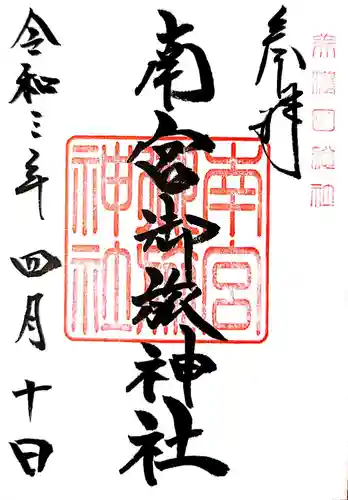 参拝
南宮御旅神社
南宮御旅神社
令和三年 四月十日